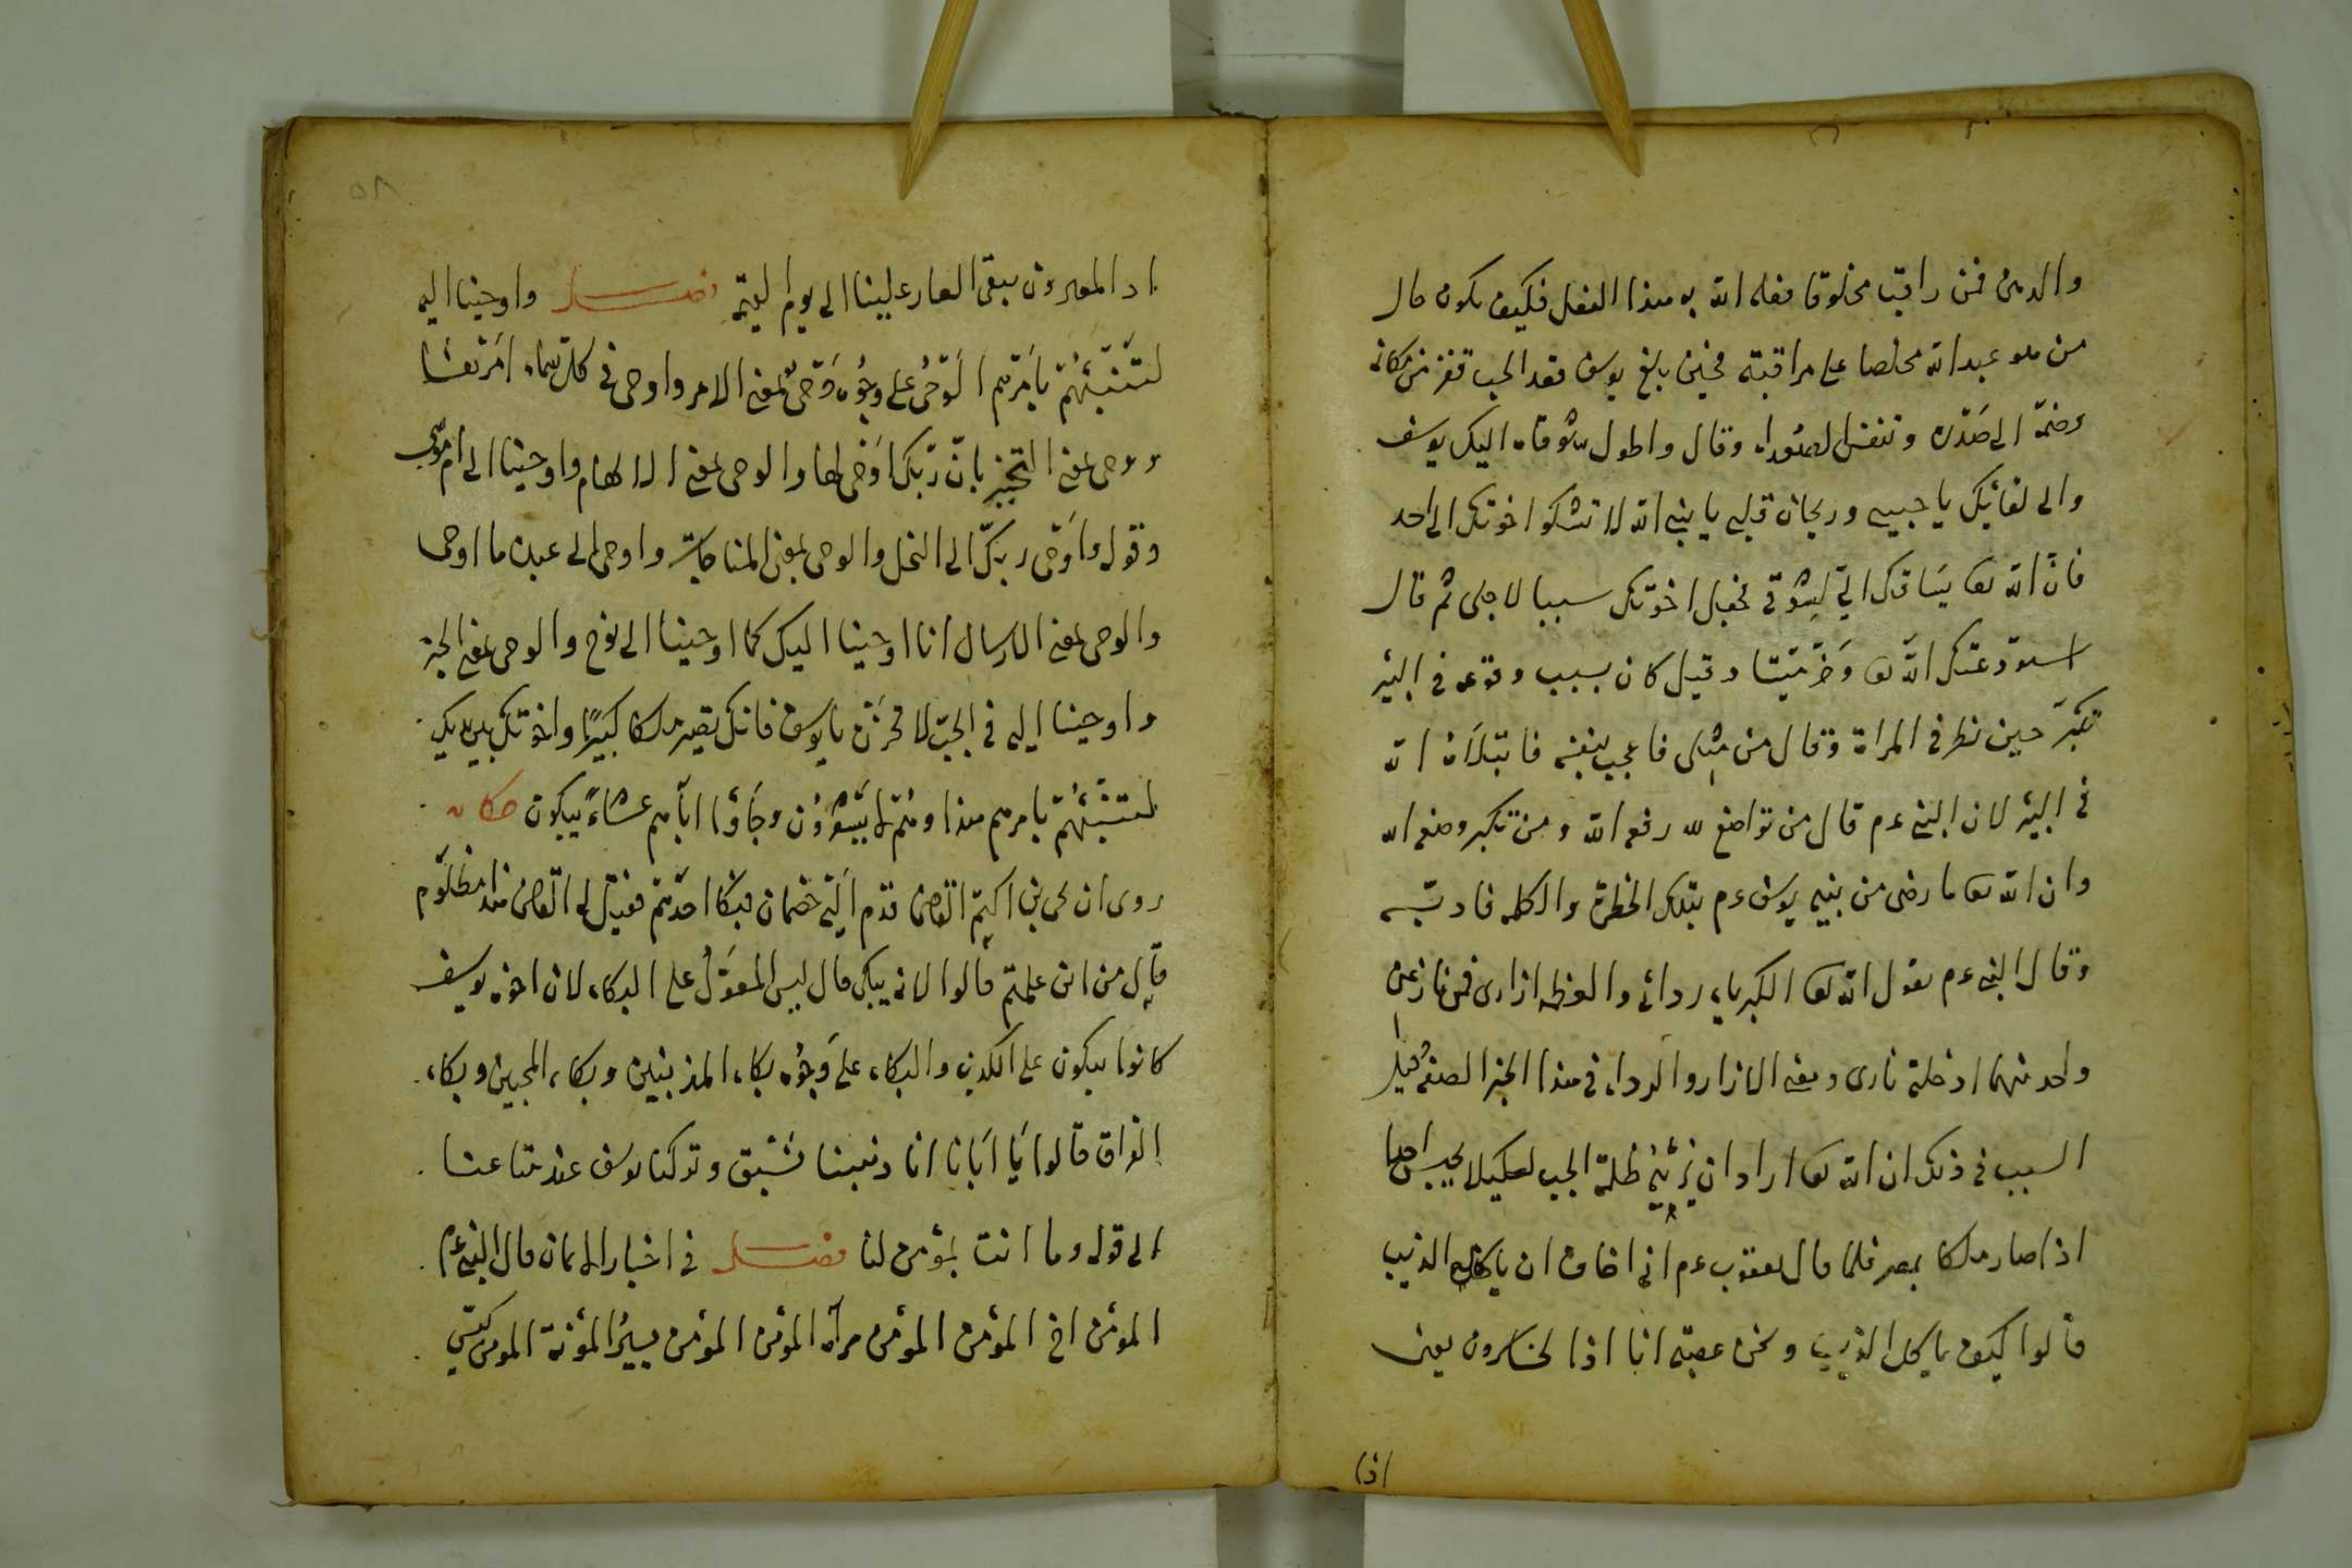 والدمن فمن راقب مخلوقا فعله الله به هذا الفعل فكيف يكون حال
من هو عبد الله مخلصا على مراقبته فحين بلغ يوسف قعد الجب قفز من مكانه
وضمه الى صدره وتنفس الصعداء وقال واطول شوقاه اليك يوسف
والى لقائك يا حبيبى وريحان قلبى يا بنى الله لا تشكوا اخوتك الى احد
فان الله تعا يساقك الى لشوقى فجعل اخوتك سببا لاجلى ثم قال
استودعتك الله تعا وخر ميتا وقيل كان بسبب وقوعه فى البئر
تكبر حين نظر فى المراة وقال من مثلى فاعجب بنفسه فابتلاه الله
فى البئر لان النبى عم قال من تواضع لله رفعه الله ومن تكبر وضعه الله
وان الله تعا ما رضى من نبيه يوسف عم بتلك الخطرة والكلمه فادبه
وقال النبى عم يقول الله تعا الكبرياء ردائى والعظمه ازارى فمن نازعنى
واحد منهما ادخلته نارى ومعنى الازار والرداء فى هذا الخبر الصفة قيل
السبب فى ذلك ان الله تعا اراد ان يرئيه ظلمة الجب لكيلا يحبس احدا
اذا صار ملكا بمصر فلما قال يعقوب عم انى اخاف ان ياكله الذيب
قالوا كيف ياكل الذيب ونحن عصبة انا اذا لخاسرون يعنى
اذا
٥٨
اذا لمغيرون يبقى العار علينا الى يوم القيمة فصل واوحينا اليه
لتنبئنهم بامرهم الوحى على وجوه وحى بمعنى الامر واوحى فى كل سماء امرها
ووحى بمعنى التخبير بان ربك اوحى لها والوحى بمعنى الالهام واوحينا الى ام موسى
وقوله واوحى ربك الى النحل والوحى بمعنى المناجات واوحى الى عبده ما اوحى
والوحى بمعنى الارسال انا اوحينا اليك كما اوحينا الى نوح والوحى بمعنى الخبر
واوحينا اليه فى الجب لا تحزن يا يوسف فانك تصير ملكا كبيرا واخوتك بين يديك
لتنبئنهم بامرهم هذا وهم لا يشعرون وجاؤا اباهم عشاء يبكون حكايه
روى ان يحى بن اكثم القاضى قدم اليه خصمان فبكا احدهم فقيل له القاضى هذا مظلوم
قال من اين علمتم قالوا لانه يبكى قال ليس المعول على البكاء لان اخوه يوسف
كانوا يبكون على الكذب والبكاء على وجوه بكاء المذنبين وبكاء المحبين وبكاء
الفراق قالوا يا ابانا انا ذهبنا نستبق وتركنا يوسف عند متاعنا
الى قوله وما انت بمؤمن لنا فصل فى اخبار الايمان قال النبى عم
المؤمن اخ المؤمن المؤمن مرآة المؤمن المؤمن يسير المؤنة المؤمن كيس